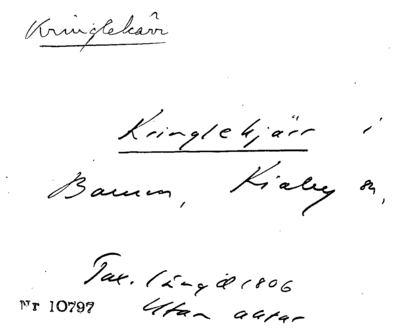 Kringlekärr
Kringlekjärr i
Bamm, Kiaby sn,
Tax. längd 1806
Nr 10797 Utan aktar